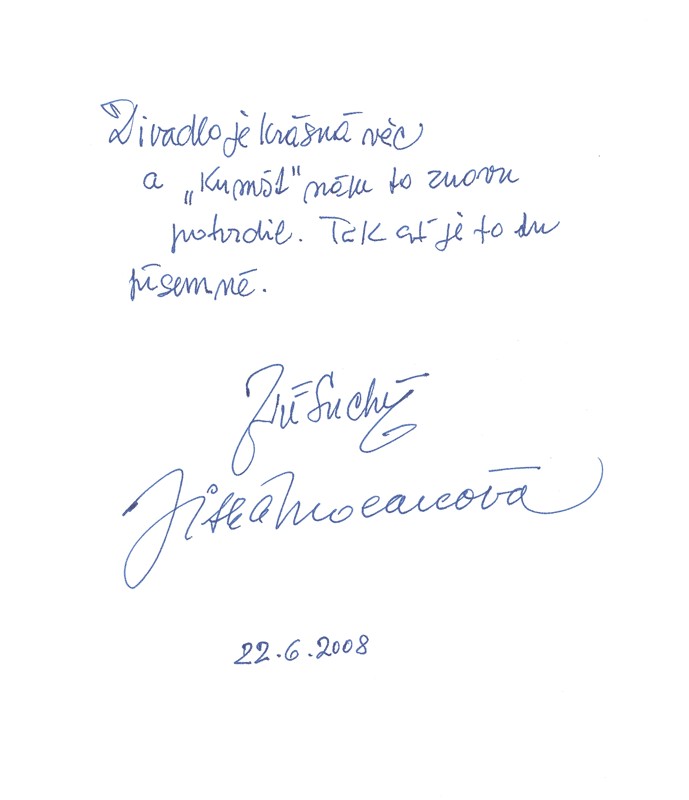 Divadlo je krásná věc
a „Kumšt" nám to znovu
potvrdil. Tak ať je to tu
písemně.
Jiří Suchý
Jitka Molavcová
22.6.2008